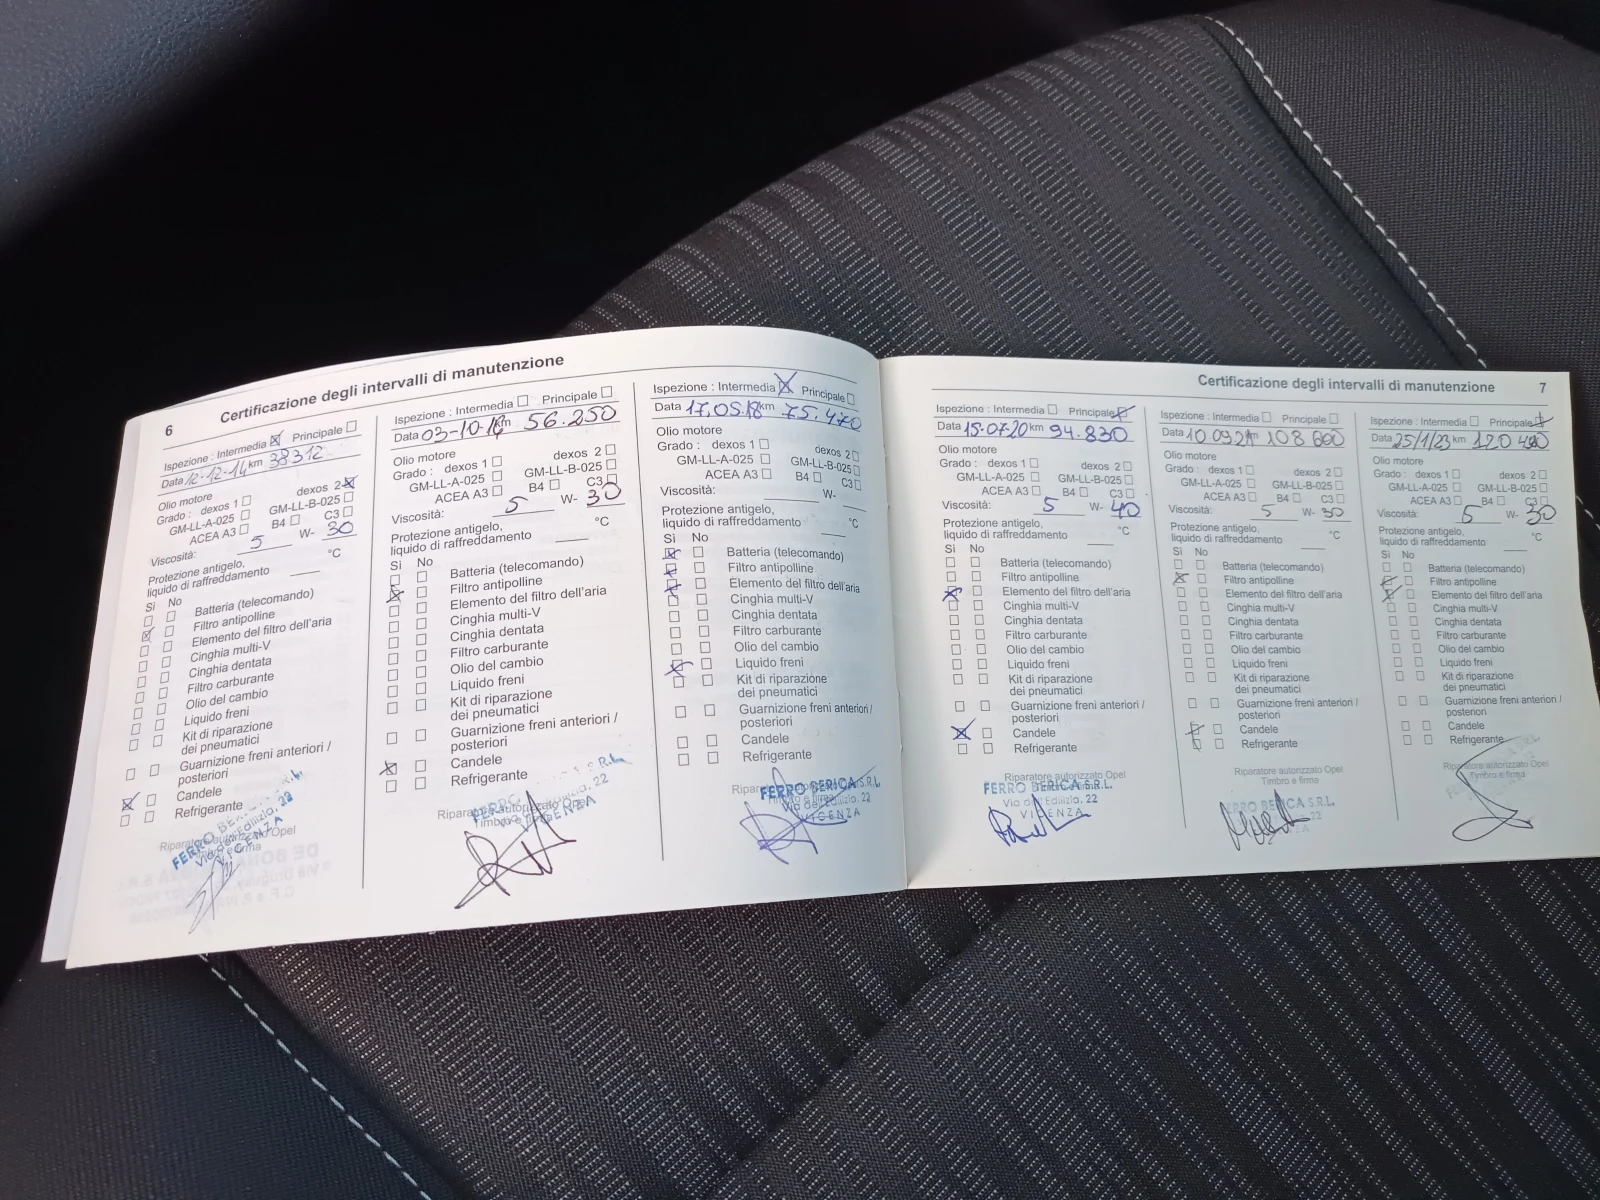 6
Certificazione degli intervalli di manutenzione
Ispezione : Intermedia ☒ Principale ☐
Data 12-12-14 km 38312
Olio motore
Grado : dexos 1 ☐ dexos 2 ☒
GM-LL-A-025 ☐ GM-LL-B-025 ☐
ACEA A3 ☐ B4 ☐ C3 ☐
Viscosità: 5 W- 30
Protezione antigelo,
liquido di raffreddamento °C
Sì No
Batteria (telecomando)
Filtro antipolline
Elemento del filtro dell'aria
Cinghia multi-V
Cinghia dentata
Filtro carburante
Olio del cambio
Liquido freni
Kit di riparazione
dei pneumatici
Guarnizione freni anteriori /
posteriori
Candele
Refrigerante
Riparatore autorizzato Opel
FERRO
VICENZA
Ispezione : Intermedia ☐ Principale ☐
Data 03-10-16 km 56.250
Olio motore
Grado : dexos 1 ☐ dexos 2 ☐
GM-LL-A-025 ☐ GM-LL-B-025 ☐
ACEA A3 ☐ B4 ☐ C3 ☐
Viscosità: 5 W- 30
Protezione antigelo,
liquido di raffreddamento °C
Sì No
Batteria (telecomando)
Filtro antipolline
Elemento del filtro dell'aria
Cinghia multi-V
Cinghia dentata
Filtro carburante
Olio del cambio
Liquido freni
Kit di riparazione
dei pneumatici
Guarnizione freni anteriori /
posteriori
Candele
Refrigerante
Riparatore autorizzato Opel
Timbro e firma
FERRO
Ispezione : Intermedia ☒ Principale ☐
Data 17.05.18 km 75.470
Olio motore
Grado : dexos 1 ☐ dexos 2 ☐
GM-LL-A-025 ☐ GM-LL-B-025 ☐
ACEA A3 ☐ B4 ☐ C3 ☐
Viscosità: W-
Protezione antigelo,
liquido di raffreddamento °C
Sì No
Batteria (telecomando)
Filtro antipolline
Elemento del filtro dell'aria
Cinghia multi-V
Cinghia dentata
Filtro carburante
Olio del cambio
Liquido freni
Kit di riparazione
dei pneumatici
Guarnizione freni anteriori /
posteriori
Candele
Refrigerante
FERRO BERICA S.R.L.
VICENZA
Certificazione degli intervalli di manutenzione
7
Ispezione : Intermedia ☐ Principale ☒
Data 15-07-20 km 94.830
Olio motore
Grado : dexos 1 ☐ dexos 2 ☐
GM-LL-A-025 ☐ GM-LL-B-025 ☐
ACEA A3 ☐ B4 ☐ C3 ☐
Viscosità: 5 W- 40
Protezione antigelo,
liquido di raffreddamento °C
Sì No
Batteria (telecomando)
Filtro antipolline
Elemento del filtro dell'aria
Cinghia multi-V
Cinghia dentata
Filtro carburante
Olio del cambio
Liquido freni
Kit di riparazione
dei pneumatici
Guarnizione freni anteriori /
posteriori
Candele
Refrigerante
Riparatore autorizzato Opel
FERRO BERICA S.R.L.
Via dell'Edilizia, 22
VICENZA
Ispezione : Intermedia ☐ Principale ☐
Data 10 09 21 km 108 600
Olio motore
Grado : dexos 1 ☐ dexos 2 ☐
GM-LL-A-025 ☐ GM-LL-B-025 ☐
ACEA A3 ☐ B4 ☐ C3 ☐
Viscosità: 5 W- 30
Protezione antigelo,
liquido di raffreddamento °C
Sì No
Batteria (telecomando)
Filtro antipolline
Elemento del filtro dell'aria
Cinghia multi-V
Cinghia dentata
Filtro carburante
Olio del cambio
Liquido freni
Kit di riparazione
dei pneumatici
Guarnizione freni anteriori /
posteriori
Candele
Refrigerante
Riparatore autorizzato Opel
Timbro e firma
FERRO BERICA S.R.L.
Ispezione : Intermedia ☐ Principale ☒
Data 25/1/23 km
Olio motore
Grado : dexos 1 ☐ dexos 2 ☐
GM-LL-A-025 ☐ GM-LL-B-025 ☐
ACEA A3 ☐ B4 ☐ C3 ☐
Viscosità: 5 W- 30
Protezione antigelo,
liquido di raffreddamento °C
Sì No
Batteria (telecomando)
Filtro antipolline
Elemento del filtro dell'aria
Cinghia multi-V
Cinghia dentata
Filtro carburante
Olio del cambio
Liquido freni
Kit di riparazione
dei pneumatici
Guarnizione freni anteriori /
posteriori
Candele
Refrigerante
Riparatore autorizzato Opel
Timbro e firma